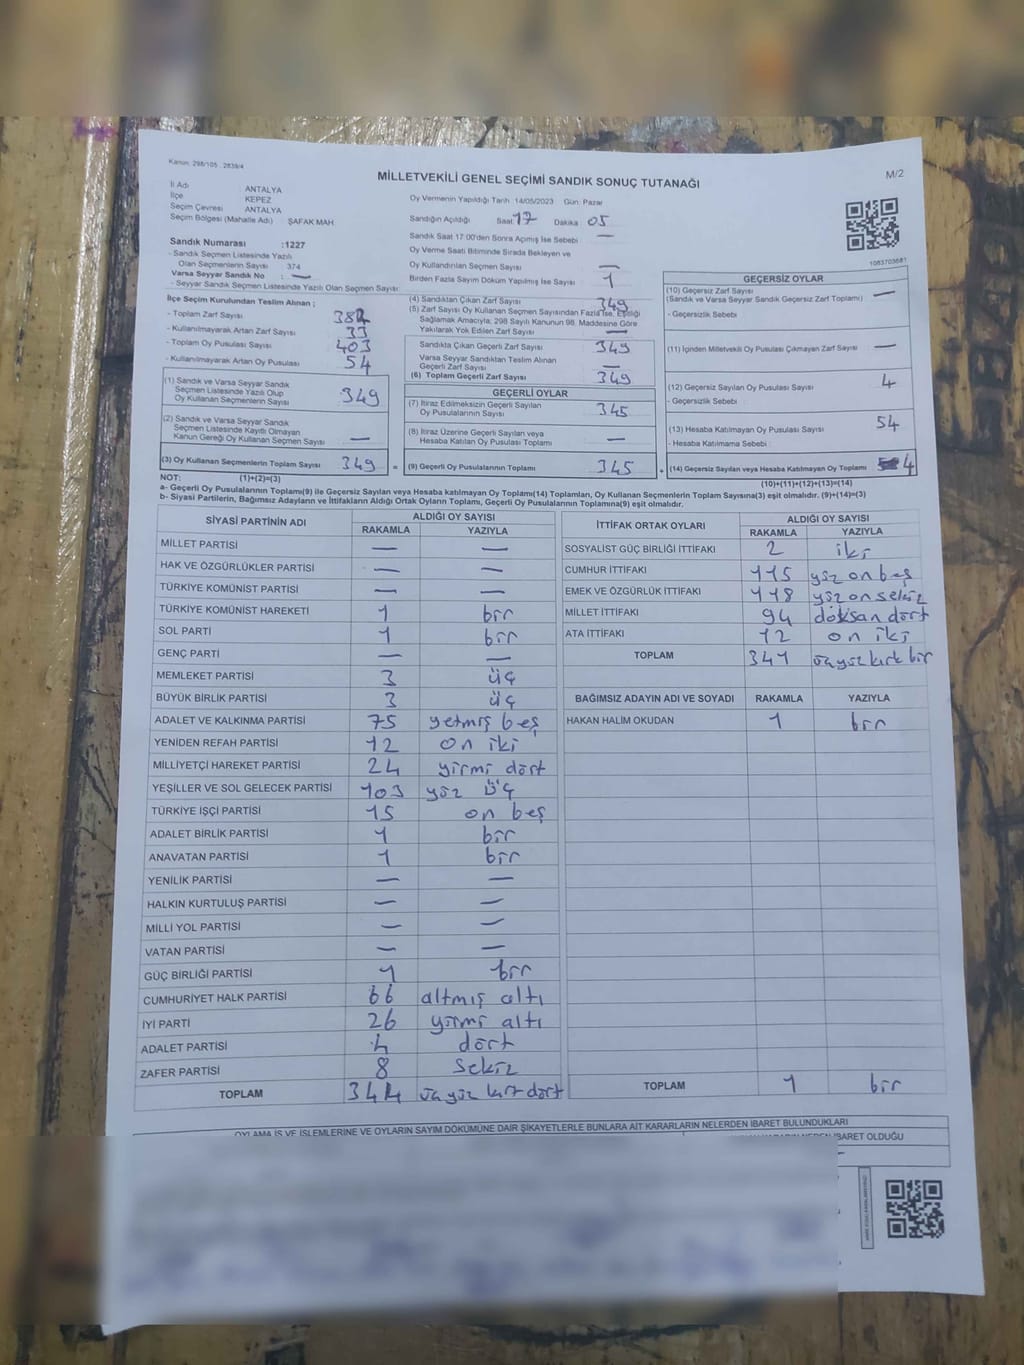 Kanun: 298/105 . 2839/4
MİLLETVEKİLİ GENEL SEÇİMİ SANDIK SONUÇ TUTANAĞI
M/2
İl Adı : ANTALYA
İlçe : KEPEZ
Seçim Çevresi : ANTALYA
Seçim Bölgesi (Mahalle Adı) : ŞAFAK MAH
Oy Vermenin Yapıldığı Tarih: 14/05/2023 Gün: Pazar
Sandığın Açıldığı Saat: 17 Dakika 05
Sandık Saat 17:00'den Sonra Açılmış İse Sebebi —
Oy Verme Saati Bitiminde Sırada Bekleyen ve
Oy Kullandırılan Seçmen Sayısı —
Birden Fazla Sayım Döküm Yapılmış İse Sayısı 1
Sandık Numarası :1227
- Sandık Seçmen Listesinde Yazılı
Olan Seçmenlerin Sayısı : 374
Varsa Seyyar Sandık No : —
- Seyyar Sandık Seçmen Listesinde Yazılı Olan Seçmen Sayısı:
1083703681
İlçe Seçim Kurulundan Teslim Alınan ;
- Toplam Zarf Sayısı 382
- Kullanılmayarak Artan Zarf Sayısı 33
- Toplam Oy Pusulası Sayısı 403
- Kullanılmayarak Artan Oy Pusulası 54
(1) Sandık ve Varsa Seyyar Sandık
Seçmen Listesinde Yazılı Olup
Oy Kullanan Seçmenlerin Sayısı 349
(2) Sandık ve Varsa Seyyar Sandık
Seçmen Listesinde Kayıtlı Olmayan
Kanun Gereği Oy Kullanan Seçmen Sayısı —
(3) Oy Kullanan Seçmenlerin Toplam Sayısı 349 =
(4) Sandıktan Çıkan Zarf Sayısı 349
(5) Zarf Sayısı Oy Kullanan Seçmen Sayısından Fazla İse, Eşitliği
Sağlamak Amacıyla; 298 Sayılı Kanunun 98. Maddesine Göre
Yakılarak Yok Edilen Zarf Sayısı —
Sandıkta Çıkan Geçerli Zarf Sayısı 349
Varsa Seyyar Sandıktan Teslim Alınan
Geçerli Zarf Sayısı —
(6) Toplam Geçerli Zarf Sayısı 349
GEÇERLİ OYLAR
(7) İtiraz Edilmeksizin Geçerli Sayılan
Oy Pusulalarının Sayısı 345
(8) İtiraz Üzerine Geçerli Sayılan veya
Hesaba Katılan Oy Pusulası Toplamı —
(9) Geçerli Oy Pusulalarının Toplamı 345 +
GEÇERSİZ OYLAR
(10) Geçersiz Zarf Sayısı
(Sandık ve Varsa Seyyar Sandık Geçersiz Zarf Toplamı) —
- Geçersizlik Sebebi
(11) İçinden Milletvekili Oy Pusulası Çıkmayan Zarf Sayısı —
(12) Geçersiz Sayılan Oy Pusulası Sayısı 4
- Geçersizlik Sebebi :
(13) Hesaba Katılmayan Oy Pusulası Sayısı 54
- Hesaba Katılmama Sebebi :
(14) Geçersiz Sayılan veya Hesaba Katılmayan Oy Toplamı 4
NOT: (1)+(2)=(3) (10)+(11)+(12)+(13)=(14)
a- Geçerli Oy Pusulalarının Toplamı(9) ile Geçersiz Sayılan veya Hesaba katılmayan Oy Toplamı(14) Toplamları, Oy Kullanan Seçmenlerin Toplam Sayısına(3) eşit olmalıdır. (9)+(14)=(3)
b- Siyasi Partilerin, Bağımsız Adayların ve İttifakların Aldığı Ortak Oyların Toplamı, Geçerli Oy Pusulalarının Toplamına(9) eşit olmalıdır.
SİYASİ PARTİNİN ADI ALDIĞI OY SAYISI
RAKAMLA YAZIYLA
MİLLET PARTİSİ — —
HAK VE ÖZGÜRLÜKLER PARTİSİ — —
TÜRKİYE KOMÜNİST PARTİSİ — —
TÜRKİYE KOMÜNİST HAREKETİ 1 bir
SOL PARTİ 1 bir
GENÇ PARTİ — —
MEMLEKET PARTİSİ 3 üç
BÜYÜK BİRLİK PARTİSİ 3 üç
ADALET VE KALKINMA PARTİSİ 75 yetmiş beş
YENİDEN REFAH PARTİSİ 12 on iki
MİLLİYETÇİ HAREKET PARTİSİ 24 yirmi dört
YEŞİLLER VE SOL GELECEK PARTİSİ 103 yüz üç
TÜRKİYE İŞÇİ PARTİSİ 15 on beş
ADALET BİRLİK PARTİSİ 1 bir
ANAVATAN PARTİSİ 1 bir
YENİLİK PARTİSİ — —
HALKIN KURTULUŞ PARTİSİ — —
MİLLİ YOL PARTİSİ — —
VATAN PARTİSİ — —
GÜÇ BİRLİĞİ PARTİSİ 1 bir
CUMHURİYET HALK PARTİSİ 66 altmış altı
İYİ PARTİ 26 yirmi altı
ADALET PARTİSİ 4 dört
ZAFER PARTİSİ 8 sekiz
TOPLAM 344 üçyüz kırk dört
İTTİFAK ORTAK OYLARI ALDIĞI OY SAYISI
RAKAMLA YAZIYLA
SOSYALİST GÜÇ BİRLİĞİ İTTİFAKI 2 iki
CUMHUR İTTİFAKI 115 yüz on beş
EMEK VE ÖZGÜRLÜK İTTİFAKI 118 yüz on sekiz
MİLLET İTTİFAKI 94 doksan dört
ATA İTTİFAKI 12 on iki
TOPLAM 341 üçyüz kırk bir
BAĞIMSIZ ADAYIN ADI VE SOYADI RAKAMLA YAZIYLA
HAKAN HALİM OKUDAN 1 bir
TOPLAM 1 bir
OYLAMA İŞ VE İŞLEMLERİNE VE OYLARIN SAYIM DÖKÜMÜNE DAİR ŞİKAYETLERLE BUNLARA AİT KARARLARIN NELERDEN İBARET BULUNDUKLARI
İBARET OLDUĞU